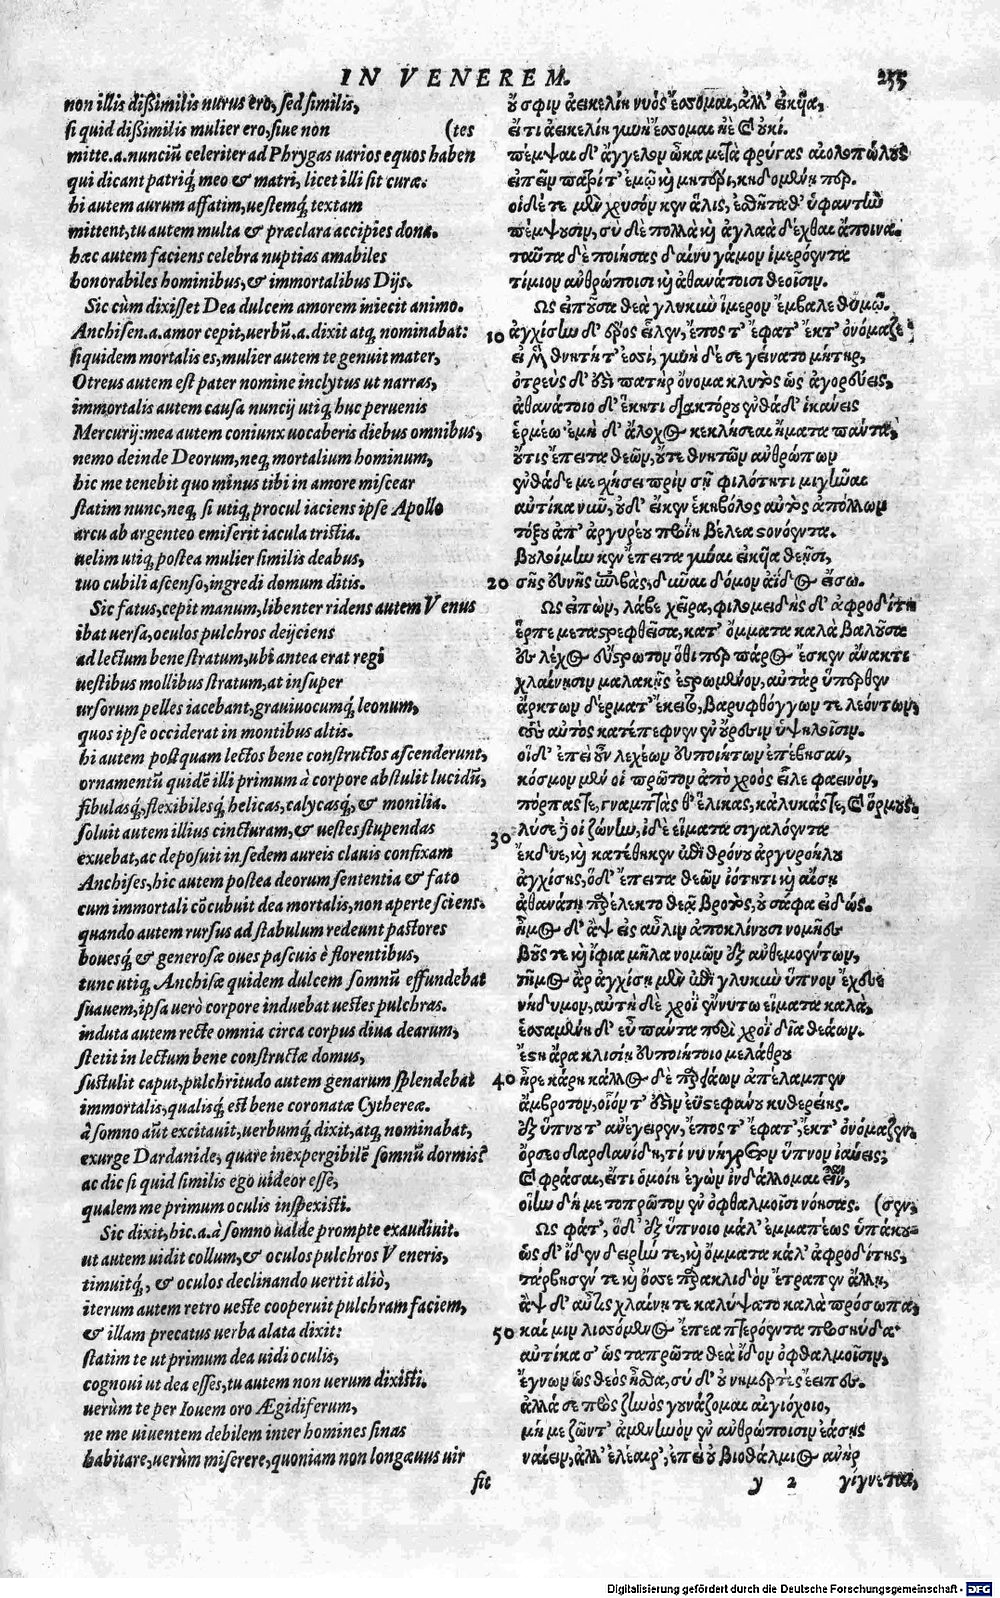 IN VENEREM. 255
non illis dißimilis nurus ero, sed similis,
si quid dißimilis mulier ero, siue non (tes
mitte.a.nunciũ celeriter ad Phrygas uarios equos haben
qui dicant patriq́; meo & matri, licet illi sit curæ.
hi autem aurum affatim, uestemq́; textam
mittent, tu autem multa & præclara accipies dona.
hæc autem faciens celebra nuptias amabiles
honorabiles hominibus, & immortalibus Dijs.
Sic cùm dixisset Dea dulcem amorem iniecit animo.
Anchisen.a.amor cepit, uerbũ.a.dixit atq; nominabat:
siquidem mortalis es, mulier autem te genuit mater,
Otreus autem est pater nomine inclytus ut narras,
immortalis autem causa nuncij utiq; huc peruenis
Mercurij: mea autem coniunx uocaberis diebus omnibus,
nemo deinde Deorum, neq; mortalium hominum,
hic me tenebit quo minus tibi in amore miscear
statim nunc, neq; si utiq; procul iaciens ipse Apollo
arcu ab argenteo emiserit iacula tristia.
uelim utiq; postea mulier similis deabus,
tuo cubili ascenso, ingredi domum ditis.
Sic fatus, cepit manum, libenter ridens autem Venus
ibat uersa, oculos pulchros deijciens
ad lectum bene stratum, ubi antea erat regi
uestibus mollibus stratum, at insuper
ursorum pelles iacebant, grauiuocumq́; leonum,
quos ipse occiderat in montibus altis.
hi autem postquam lectos bene constructos ascenderunt,
ornamentũ quidẽ illi primum à corpore abstulit lucidũ,
fibulasq́;, flexibilesq́; helicas, calycasq́;, & monilia.
soluit autem illius cincturam, & uestes stupendas
exuebat, ac deposuit in sedem aureis clauis confixam
Anchises, hic autem postea deorum sententia & fato
cum immortali cõcubuit dea mortalis, non aperte sciens.
quando autem rursus ad stabulum redeunt pastores
bouesq́; & generosæ oues pascuis è florentibus,
tunc utiq; Anchisæ quidem dulcem somnũ effundebat
suauem, ipsa uerò corpore induebat uestes pulchras.
induta autem recte omnia circa corpus diua dearum,
stetit in lectum bene constructæ domus,
sustulit caput, pulchritudo autem genarum splendebat
immortalis, qualisq́; est bene coronatæ Cythereæ.
à somno aũt excitauit, uerbumq́; dixit, atq; nominabat,
exurge Dardanide, quare inexpergibilẽ somnũ dormis?
ac dic si quid similis ego uideor esse,
qualem me primum oculis inspexisti.
Sic dixit, hic.a.à somno ualde prompte exaudiuit.
ut autem uidit collum, & oculos pulchros Veneris,
timuitq́;, & oculos declinando uertit aliò,
iterum autem retro ueste cooperuit pulchram faciem,
& illam precatus uerba alata dixit:
statim te ut primum dea uidi oculis,
cognoui ut dea esses, tu autem non uerum dixisti.
uerùm te per Iouem oro Ægidiferum,
ne me uiuentem debilem inter homines sinas
habitare, uerùm miserere, quoniam non longæuus uir
fit
οὔ σφιμ ἀεικελίη νυὸς ἔσσομαι, ἀλλ' εἰκῆα,
εἴ τι ἀεικελίη γυνὴ ἔσσομαι ἠὲ καὶ οὐκί.
πέμψαι δ' ἄγγελον ὦκα μετὰ φρύγας αἰολοπώλους
εἰπεῖν πατρί τ' ἐμῷ καὶ μητέρι, κηδομένη περ.
οἱ δέ τε μὲν χρυσόν κεν ἅλις, ἐσθῆτα θ' ὑφαντὴν
πέμψουσιν, σὺ δὲ πολλὰ καὶ ἀγλαὰ δέχθαι ἄποινα.
ταῦτα δὲ ποιήσας δαίνυ γάμον ἱμερόεντα
τίμιον ἀνθρώποισι καὶ ἀθανάτοισι θεοῖσιν.
Ως εἰποῦσα θεὰ γλυκὺν ἵμερον ἔμβαλε θυμῷ.
10 ἀγχίσην δ' ἔρος εἷλεν, ἔπος τ' ἔφατ' ἔκ τ' ὀνόμαζε
εἰ μὲν θνητή τ' ἐσσί, γυνὴ δέ σε γείνατο μήτηρ,
ὀτρεὺς δ' ἐστὶ πατὴρ ὄνομα κλυτὸς ὡς ἀγορεύεις,
ἀθανάτοιο δ' ἕκητι διακτόρου ἐνθάδ' ἱκάνεις
ἑρμέω· ἐμὴ δ' ἄλοχος κεκλήσεαι ἤματα πάντα,
οὔτις ἔπειτα θεῶν, οὔτε θνητῶν ἀνθρώπων
ἐνθάδε με σχήσει πρὶν σῇ φιλότητι μιγῆναι
αὐτίκα νῦν, οὐδ' εἴ κεν ἑκηβόλος αὐτὸς ἀπόλλων
τόξου ἀπ' ἀργυρέου προΐη βέλεα στονόεντα.
βουλοίμην κεν ἔπειτα γύναι εἰκῆα θεῇσι,
20 σῆς εὐνῆς ἐπιβὰς, δῦναι δόμον ἄϊδος εἴσω.
Ως εἰπὼν, λάβε χεῖρα, φιλομειδὴς δ' ἀφροδίτη
ἕρπε μεταστρεφθεῖσα, κατ' ὄμματα καλὰ βαλοῦσα
ἐς λέχος εὔστρωτον ὅθι περ πάρος ἔσκεν ἄνακτι
χλαίνῃσιν μαλακῇς ἐστρωμένον, αὐτὰρ ὕπερθεν
ἄρκτων δέρματ' ἔκειτο, βαρυφθόγγων τε λεόντων,
τοὺς αὐτὸς κατέπεφνεν ἐν οὔρεσιν ὑψηλοῖσιν.
οἱ δ' ἐπεὶ οὖν λεχέων εὐποιήτων ἐπέβησαν,
κόσμον μέν οἱ πρῶτον ἀπὸ χροὸς εἷλε φαεινόν,
πόρπας τε, γναμπτάς θ' ἕλικας, κάλυκάς τε, καὶ ὅρμους.
30 λῦσε δέ οἱ ζώνην, ἰδὲ εἵματα σιγαλόεντα
ἔκδυε, καὶ κατέθηκεν ἐπὶ θρόνου ἀργυροήλου
ἀγχίσης, ὅ δ' ἔπειτα θεῶν ἰότητι καὶ αἴσῃ
ἀθανάτῃ παρέλεκτο θεᾷ βροτὸς, οὐ σάφα εἰδώς.
ἦμος δ' ἂψ εἰς αὖλιν ἀποκλίνουσι νομῆες
βοῦς τε καὶ ἴφια μῆλα νομῶν ἐξ ἀνθεμοέντων,
τῆμος ἄρ ἀγχίσῃ μὲν ἐπὶ γλυκὺν ὕπνον ἔχευε
νήδυμον, αὐτὴ δὲ χροῒ ἕννυτο εἵματα καλὰ,
ἑσσαμένη δ' εὖ πάντα περὶ χροῒ δῖα θεάων.
ἔστη ἄρα κλισίῃ εὐποιήτοιο μελάθρου
40 ἦρε κάρη κάλλος δὲ παρειάων ἀπέλαμπεν
ἄμβροτον, οἷόν τ' ἐστὶν ἐϋστεφάνου κυθερείης.
ἐξ ὕπνου τ' ἀνέγειρεν, ἔπος τ' ἔφατ', ἔκ τ' ὀνόμαζεν.
ὄρσεο δαρδανίδη, τί νυ νήγρετον ὕπνον ἰαύεις;
καὶ φράσαι, εἴ τι ὁμοίη ἐγὼν ἰνδάλλομαι εἶναι,
οἵην δή με τοπρῶτον ἐν ὀφθαλμοῖσι νόησας. (σεν,
Ως φάτ', ὅ δ' ἐξ ὕπνοιο μάλ' ἐμμαπέως ὑπάκου-
ὡς δ' ἴδεν δειρήν τε, καὶ ὄμματα κάλ' ἀφροδίτης,
τάρβησέν τε καὶ ὄσσε παρακλιδὸν ἔτραπεν ἄλλῃ,
ἂψ δ' αὖτις χλαίνῃ τε καλύψατο καλὰ πρόσωπα,
50 καί μιν λισσόμενος ἔπεα πτερόεντα προσηύδα·
αὐτίκα σ' ὡς ταπρῶτα θεὰ ἴδον ὀφθαλμοῖσιν,
ἔγνων ὡς θεὸς ἦσθα, σὺ δ' οὐ νημερτὲς ἔειπες.
ἀλλά σε πρὸς ζηνὸς γουνάζομαι αἰγιόχοιο,
μή με ζῶντ' ἀμενηνὸν ἐν ἀνθρώποισιν ἐάσῃς
ναίειν, ἀλλ' ἐλέαιρ', ἐπεὶ οὐ βιοθάλμιος ἀνὴρ
y 2 γίγνεται,
Digitalisierung gefördert durch die Deutsche Forschungsgemeinschaft - DFG